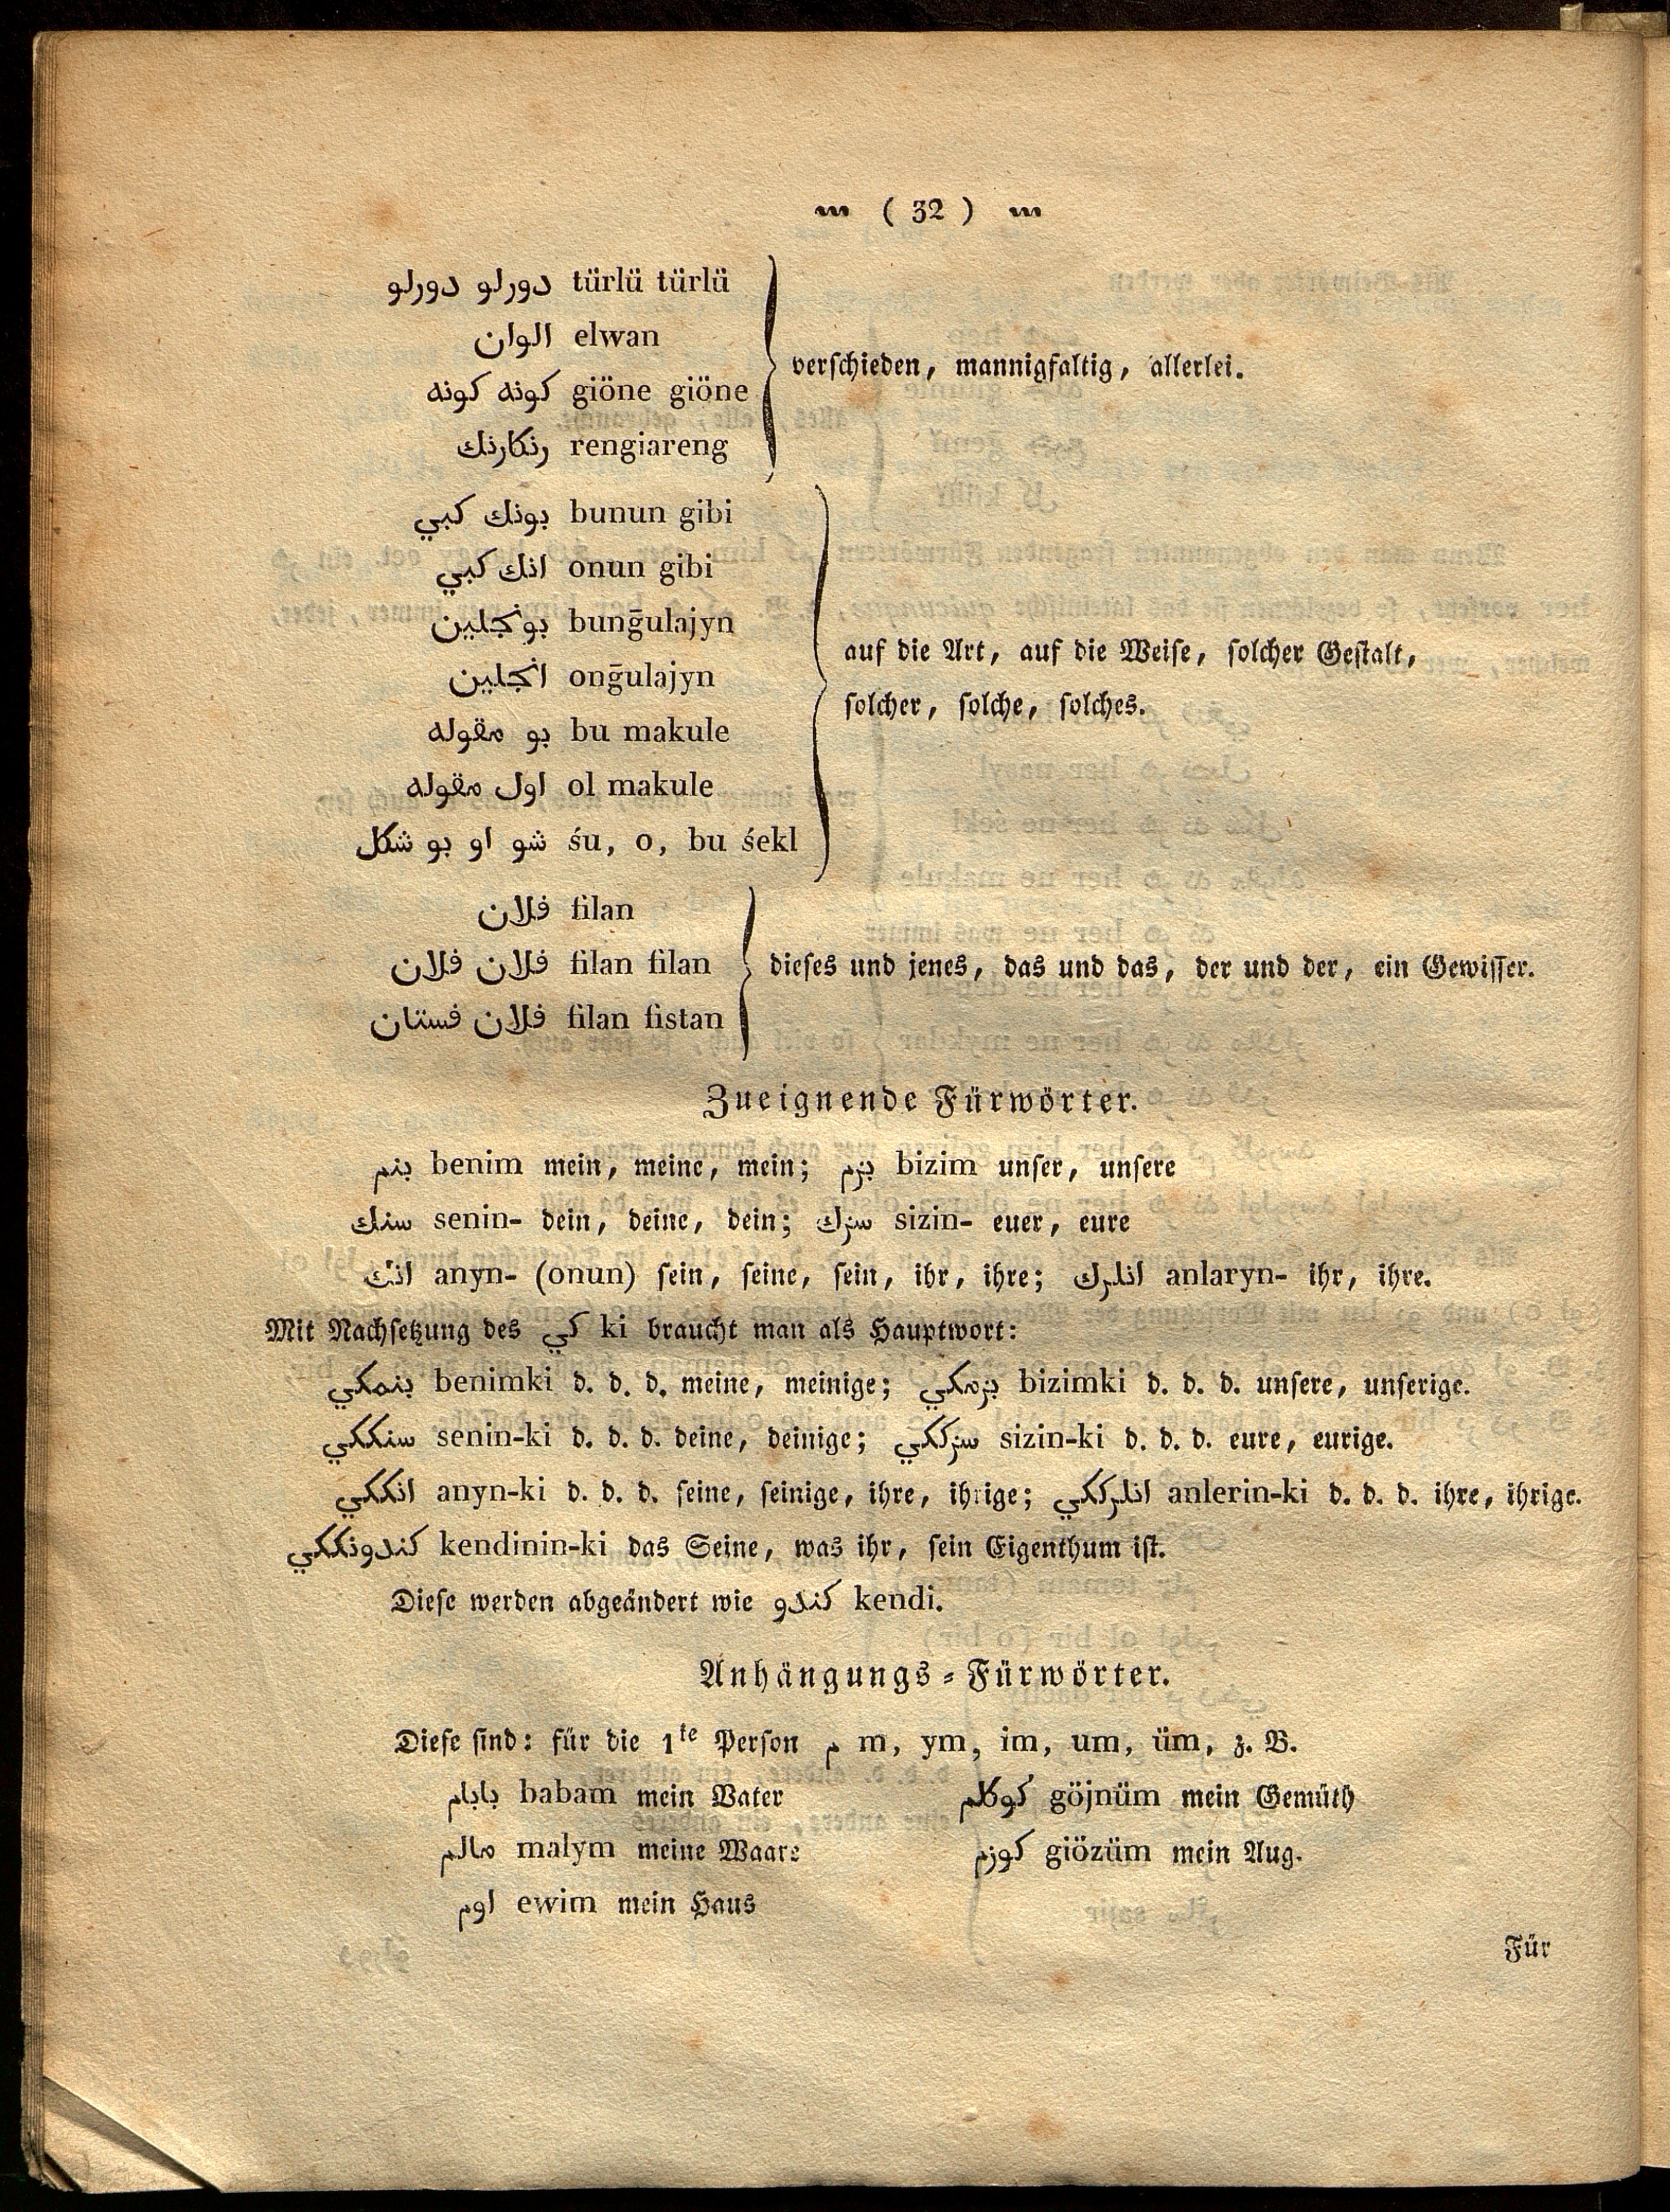 ( 32 )
دورلو دورلو türlü türlü
الوان elwan
verschieden, mannigfaltig, allerlei.
كونه كونه giöne giöne
رنكارنك rengiareng
بونك كبي bunun gibi
انك كبي onun gibi
بونجلين bunḡulajyn
auf die Art, auf die Weise, solcher Gestalt,
انجلين onḡulajyn
solcher, solche, solches.
بو مقوله bu makule
اول مقوله ol makule
شو او بو شكل śu, o, bu śekl
فلان filan
فلان فلان filan filan
dieses und jenes, das und das, der und der, ein Gewisser.
فلان فستان filan fistan
Zueignende Fürwörter.
بنم benim mein, meine, mein; بزم bizim unser, unsere
سنك senin- dein, deine, dein; سزك sizin- euer, eure
انك anyn- (onun) sein, seine, sein, ihr, ihre; انلرك anlaryn- ihr, ihre.
Mit Nachsetzung des كي ki braucht man als Hauptwort:
بنمكي benimki d. d. d. meine, meinige; بزمكي bizimki d. d. d. unsere, unserige.
سنككي senin-ki d. d. d. deine, deinige; سزككي sizin-ki d. d. d. eure, eurige.
انككي anyn-ki d. d. d. seine, seinige, ihre, ihrige; انلرككي anlerin-ki d. d. d. ihre, ihrige.
كندونككي kendinin-ki das Seine, was ihr, sein Eigenthum ist.
Diese werden abgeändert wie كندو kendi.
Anhängungs-Fürwörter.
Diese sind: für die 1te Person م m, ym, im, um, üm, z. B.
بابام babam mein Vater كوكلم göjnüm mein Gemüth
مالم malym meine Waare كوزم giözüm mein Aug.
اوم ewim mein Haus
Für